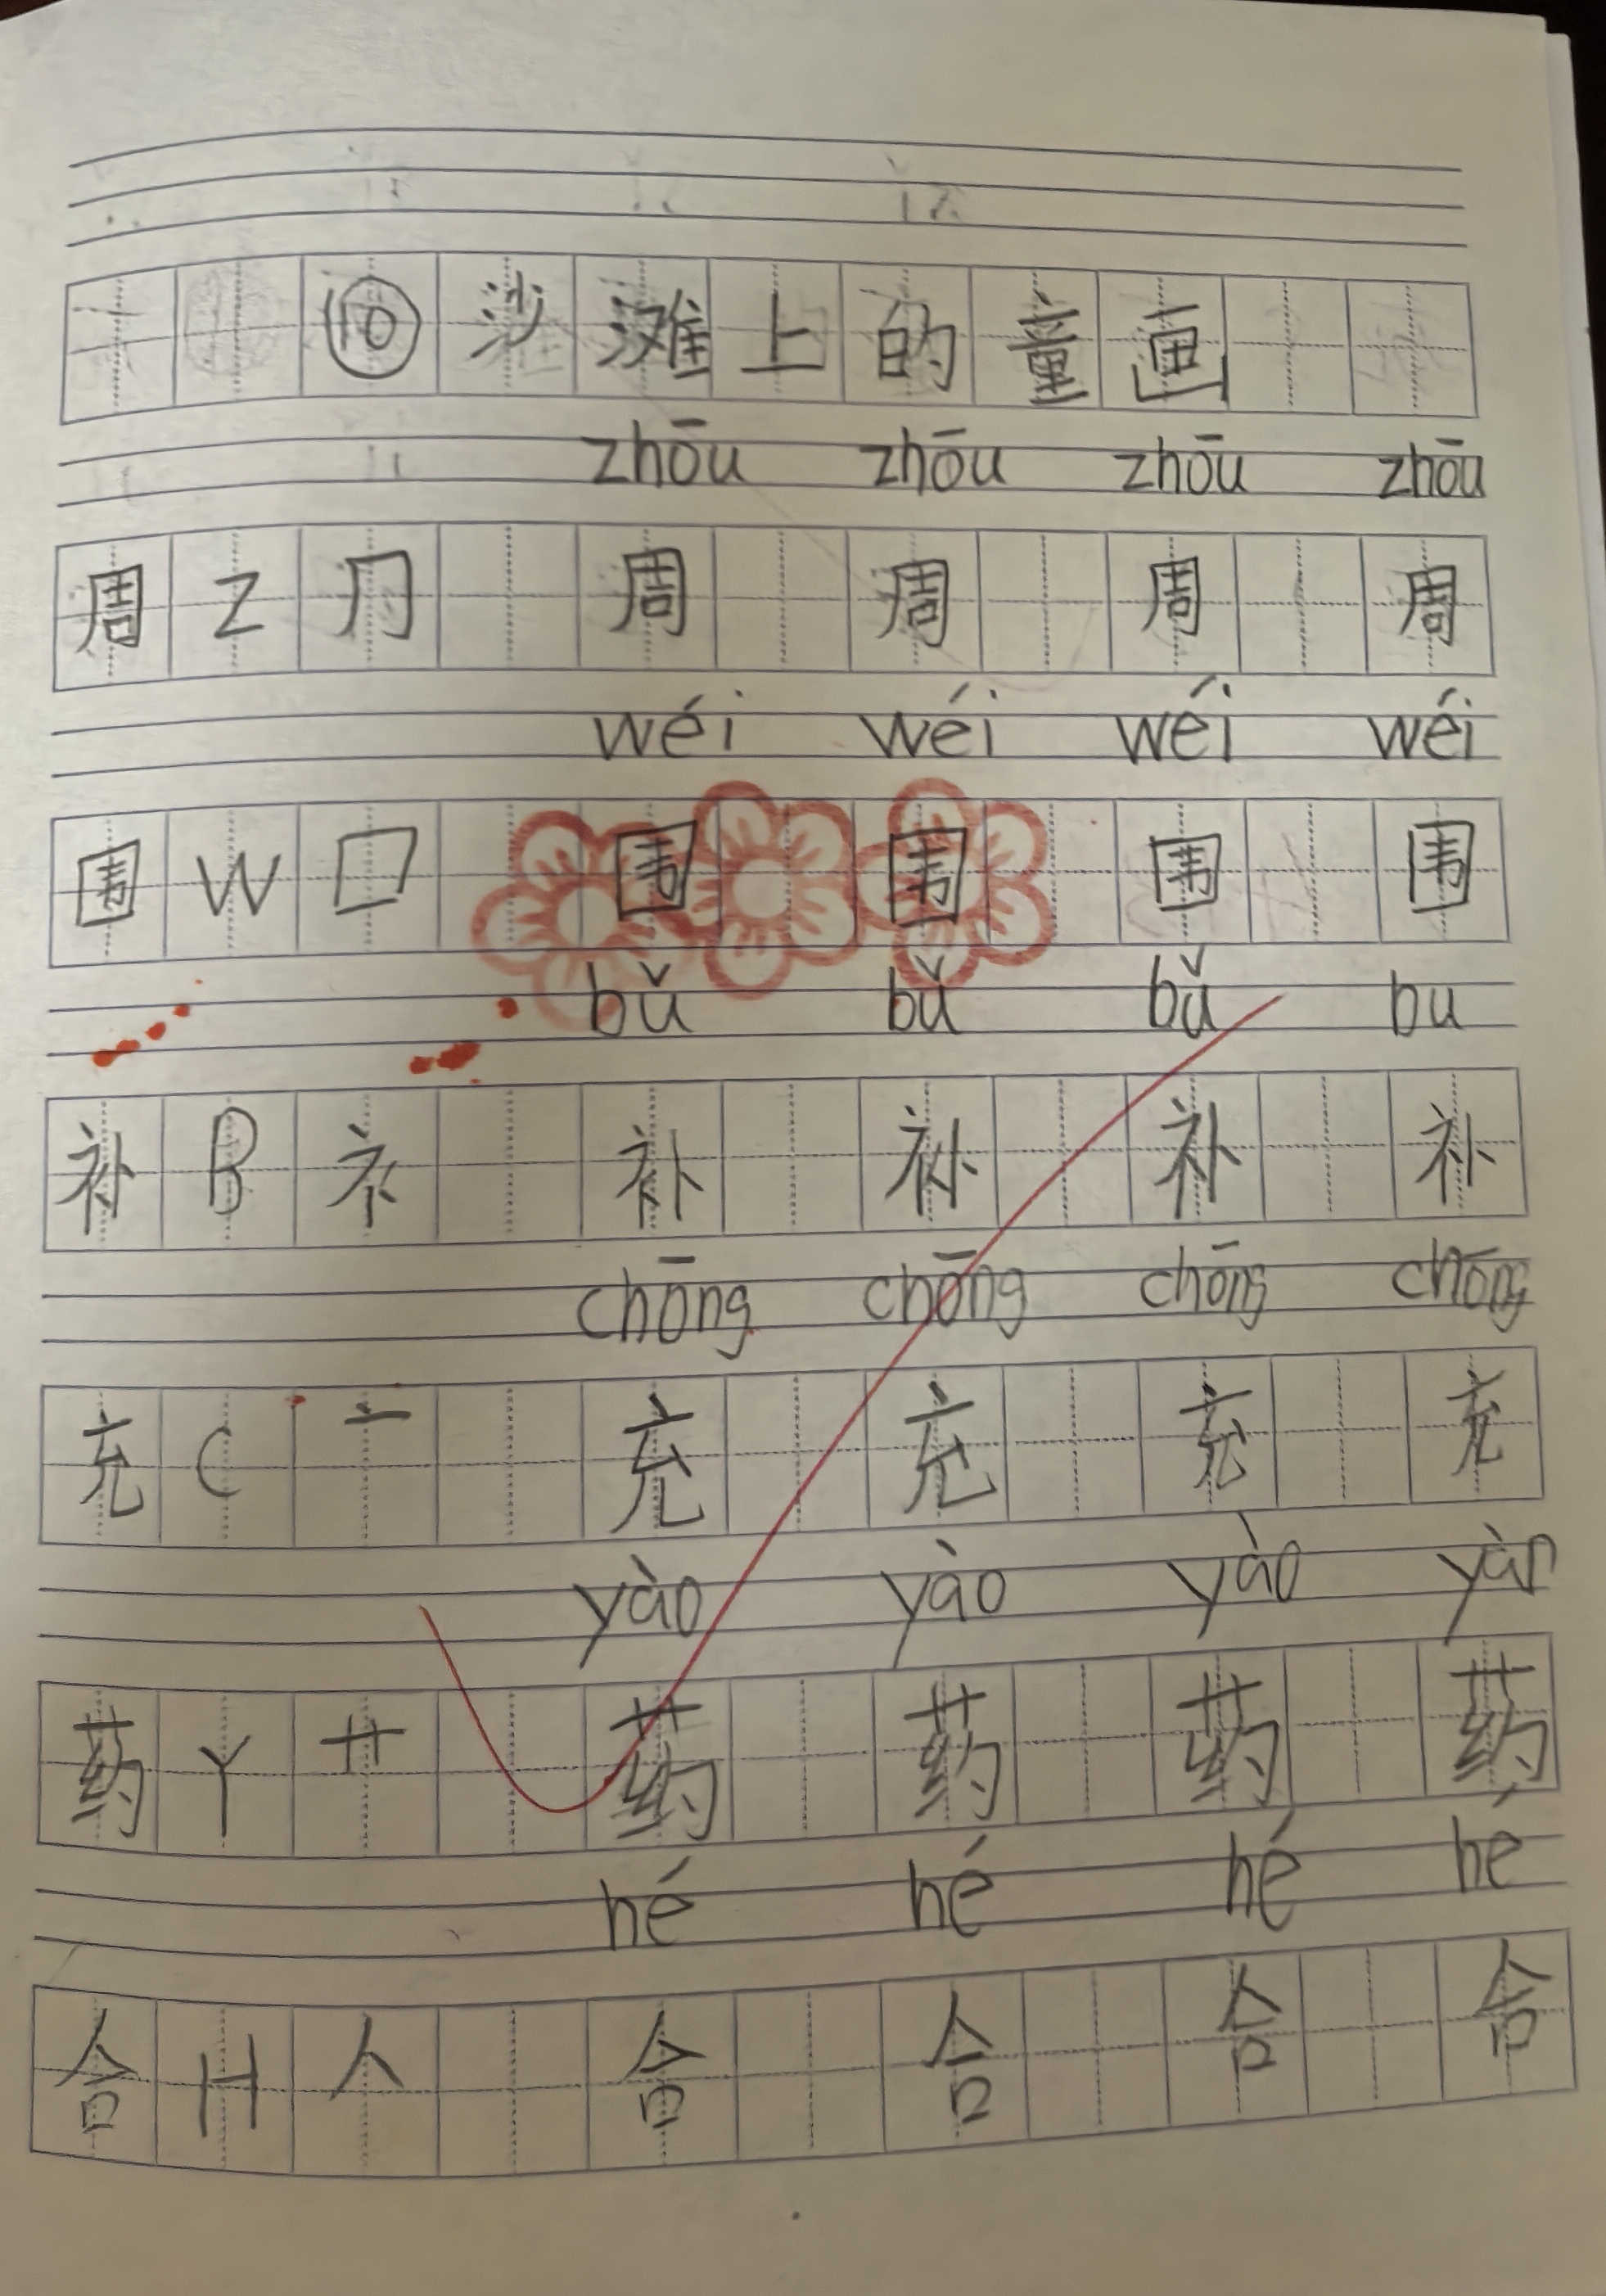 ⑩沙滩上的童画
zhōu zhōu zhōu zhōu
周 Z 冂 周 周 周 周
wéi wéi wéi wéi
围 W 囗 围 围 围 围
bǔ bǔ bǔ bu
补 B 衤 补 补 补 补
chōng chōng chōng chōng
充 C 亠 充 充 充 充
yào yào yào yào
药 Y 艹 药 药 药 药
hé hé hé hé
合 H 人 合 合 合 合